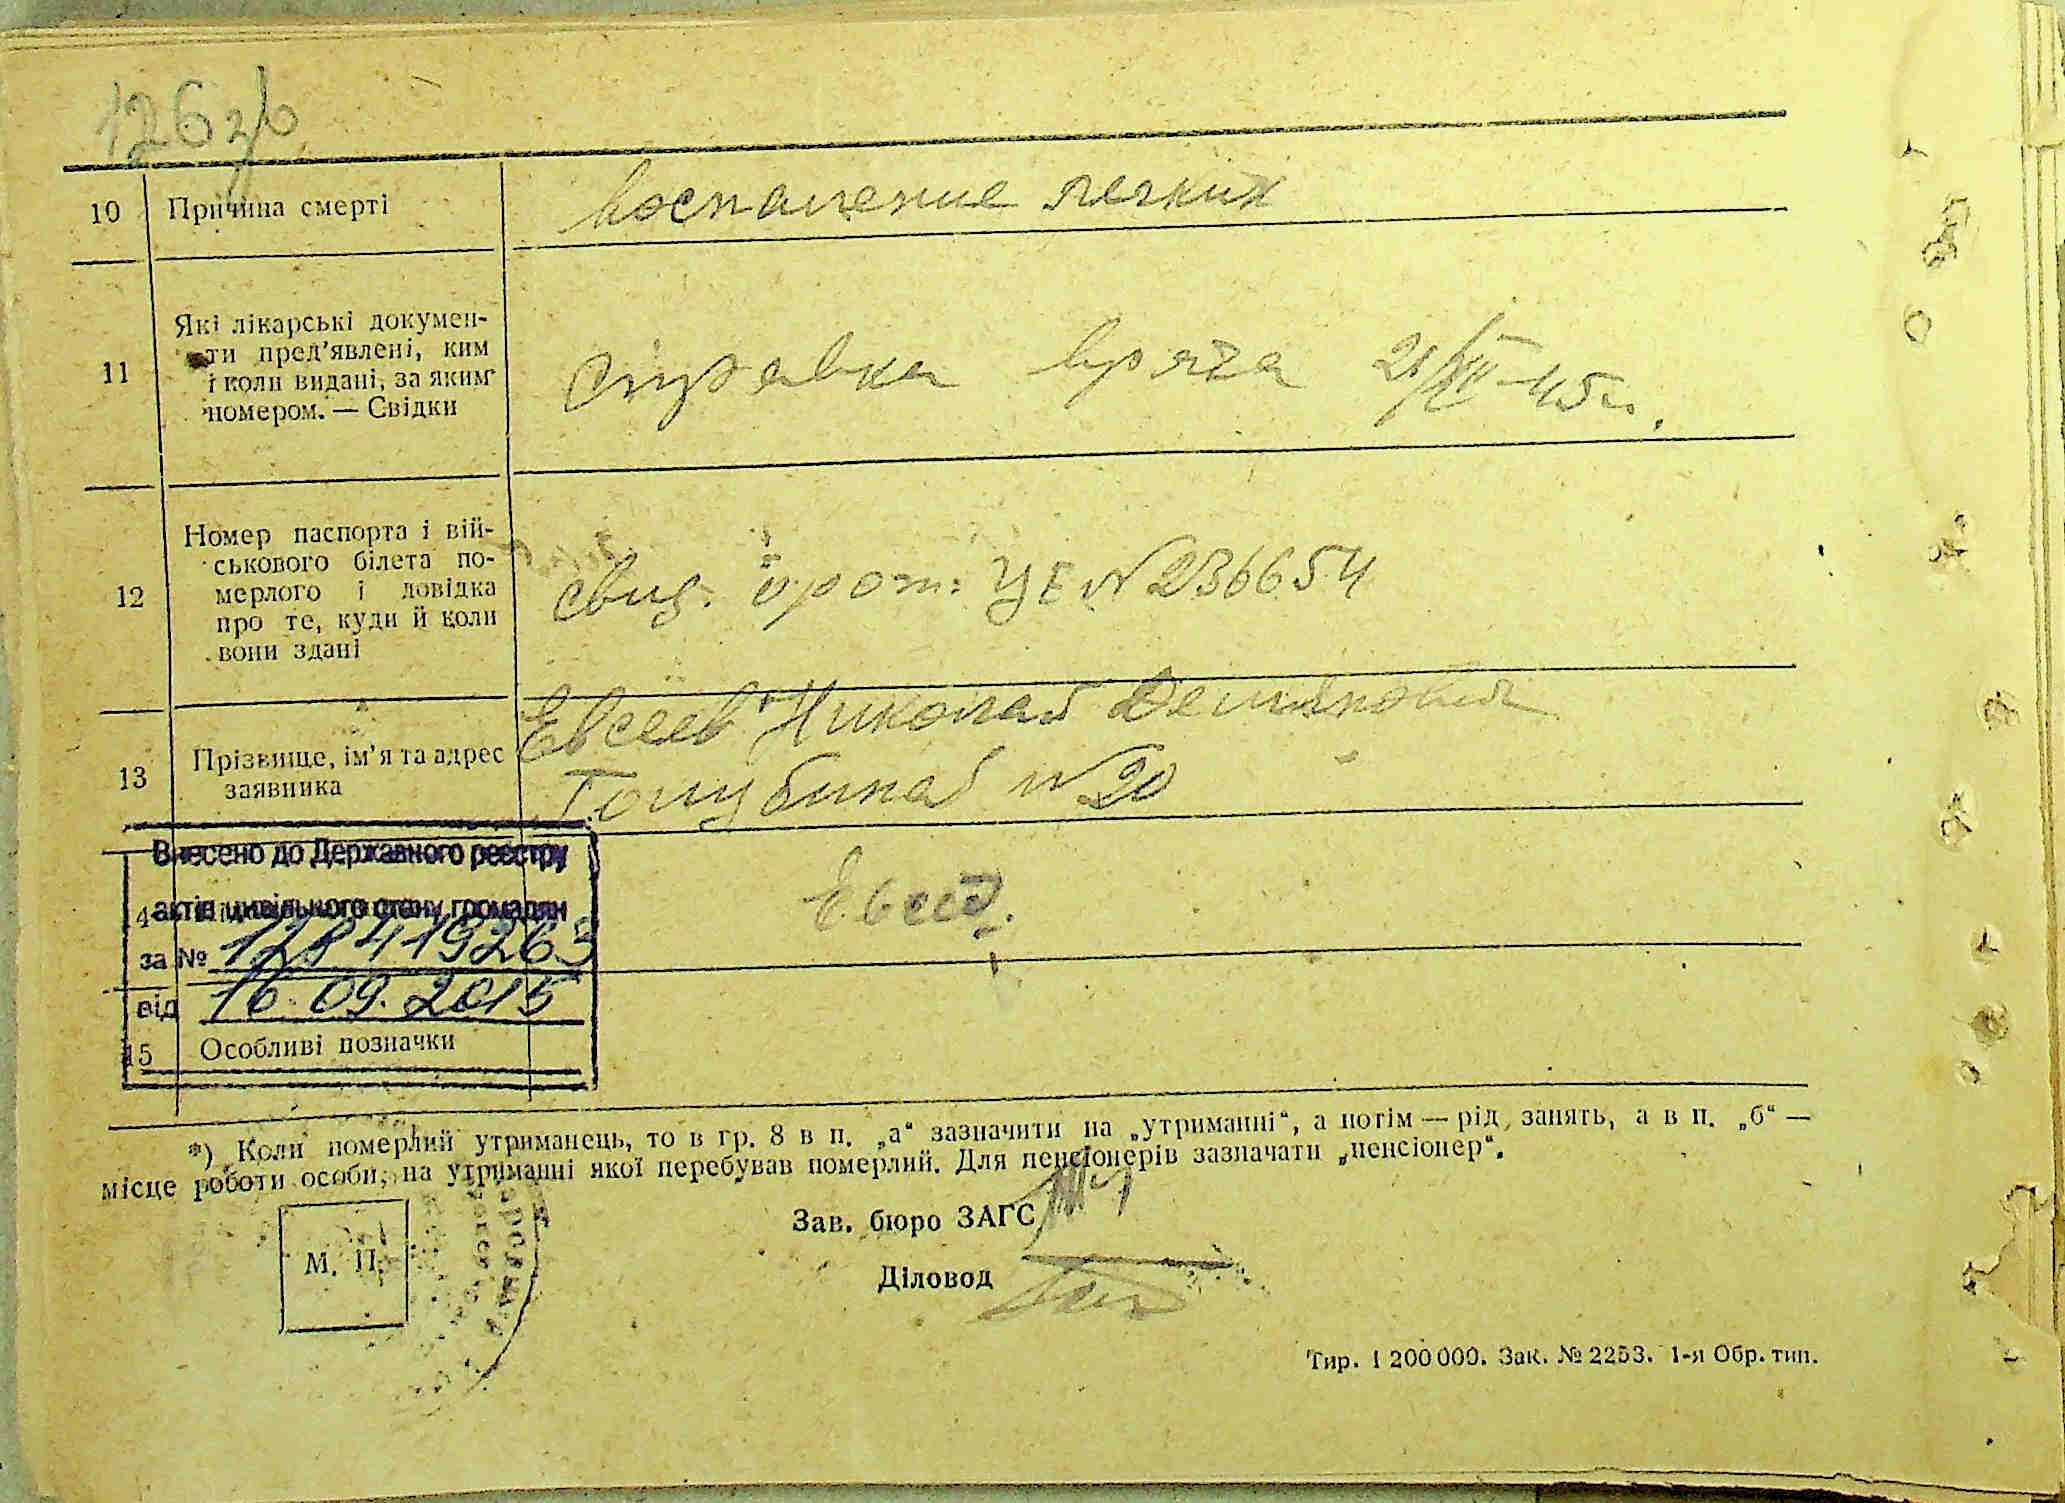 126 зв
10 Причина смерті воспаление легких
11 Які лікарські докумен-
ти пред'явлені, ким
і коли видані, за яким
номером. — Свідки
справка врача 21/XII-45 г.
12 Номер паспорта і вій-
ськового білета по-
мерлого і довідка
про те, куди й коли
вони здані
свид. о рож. УЕ №236654
13 Прізвище, ім'я та адрес
заявника
Евсеев Николай Демянович
Голубиная №20
Внесено до Державного реєстру
актів цивільного стану громадян
за № 128419263
від 16.09.2015
Евсев.
15 Особливі позначки
*) Коли померлий утриманець, то в гр. 8 в п. „а“ зазначити на „утриманні“, а потім — рід занять, а в п. „б“ —
місце роботи особи, на утриманні якої перебував померлий. Для пенсіонерів зазначати „пенсіонер“.
М. П.
Зав. бюро ЗАГС
Діловод
Тир. 1 200 000. Зак. № 2253. 1-я Обр. тип.